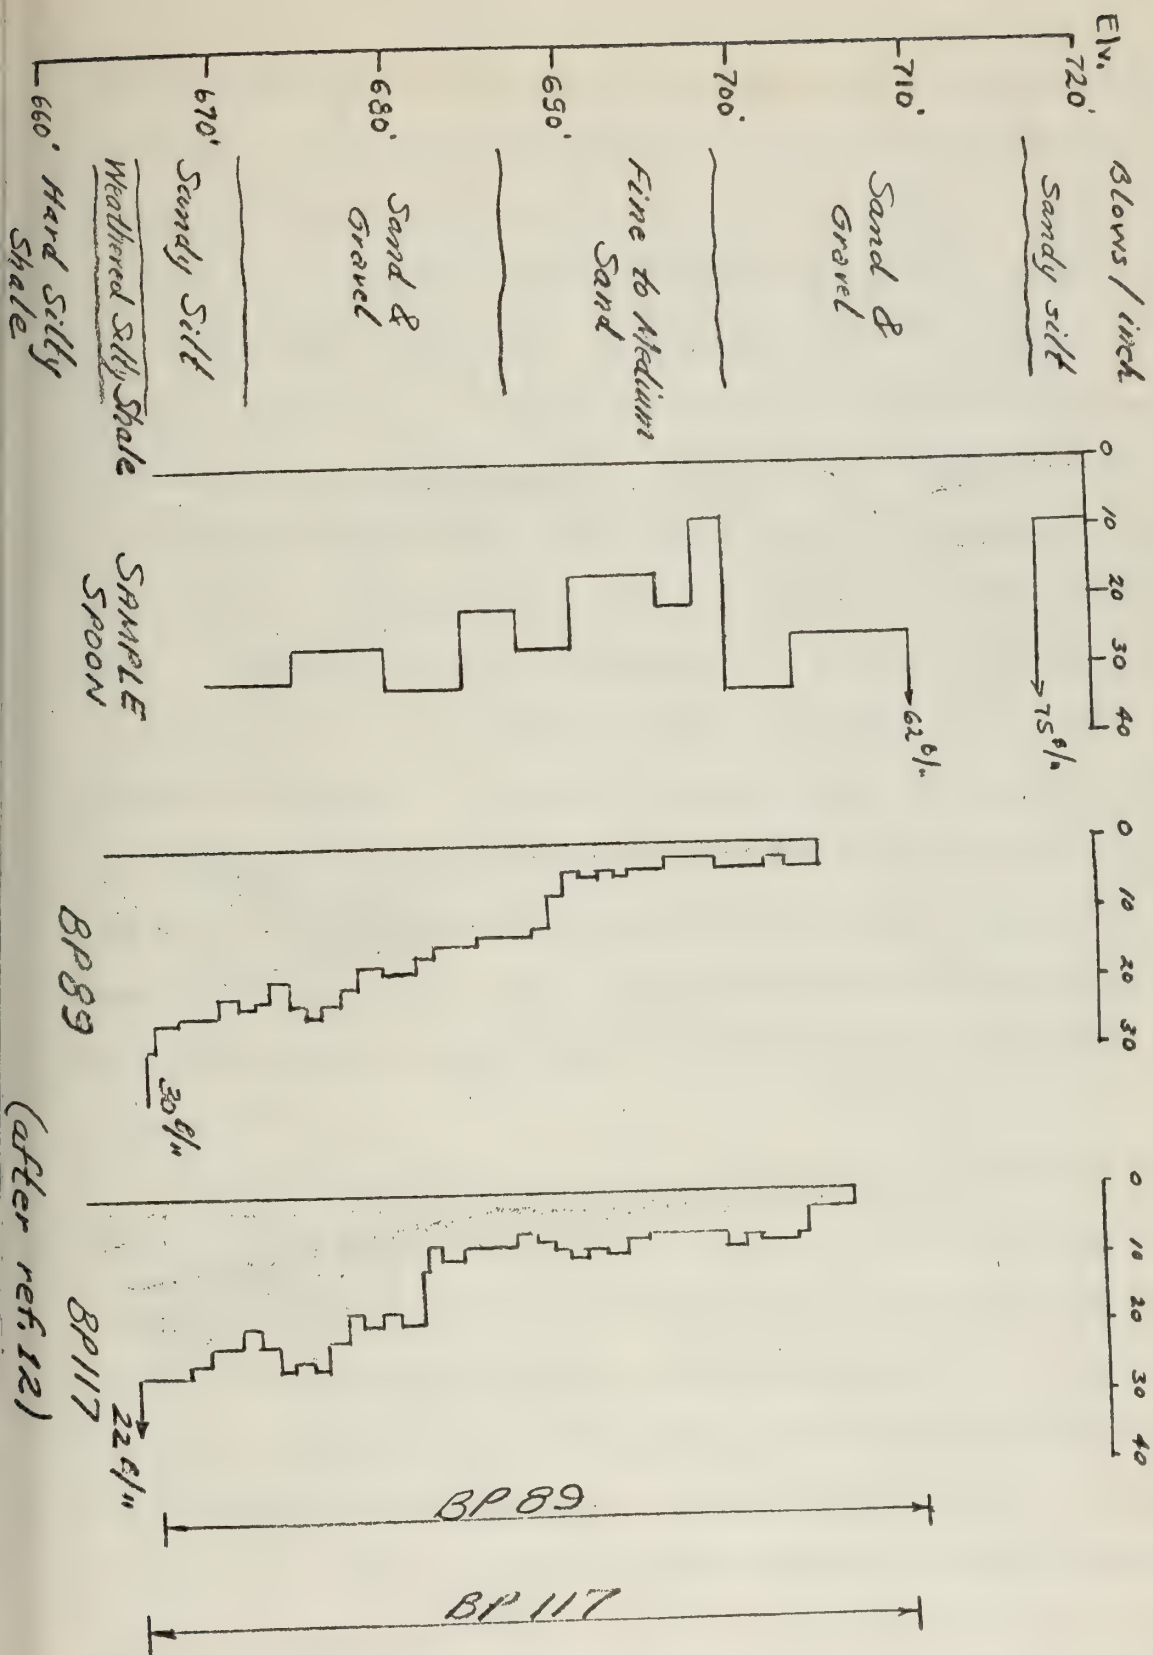 Elv.
Blows / inch
-720'
-710'
-700'
-690'
-680'
-670'
-660'
Sandy silt
Sand &
Gravel
Fine to Medium
Sand
Sand &
Gravel
Sandy Silt
Weathered Silty Shale
Hard Silty
Shale
0 10 20 30 40
75 B/"
62 B/"
SAMPLE
SPOON
0 10 20 30
30 B/"
BP89
0 10 20 30 40
22 B/"
BP117
BP 89
BP 117
(after ref. 12)